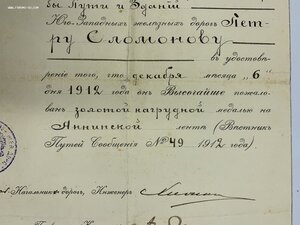 бы Пути и Зданій
Юго-Западныхъ желѣзныхъ дорогъ Пет-
ру Сломонову
въ удостовѣ-
реніе того, что декабря мѣсяца "6"
дня 1912 года онъ Высочайше пожало-
ванъ золотой нагрудной медалью на
Аннинской лентѣ (Вѣстникъ
Путей Сообщенія № 49 1912 года).
Начальникъ дорогъ, Инженеръ